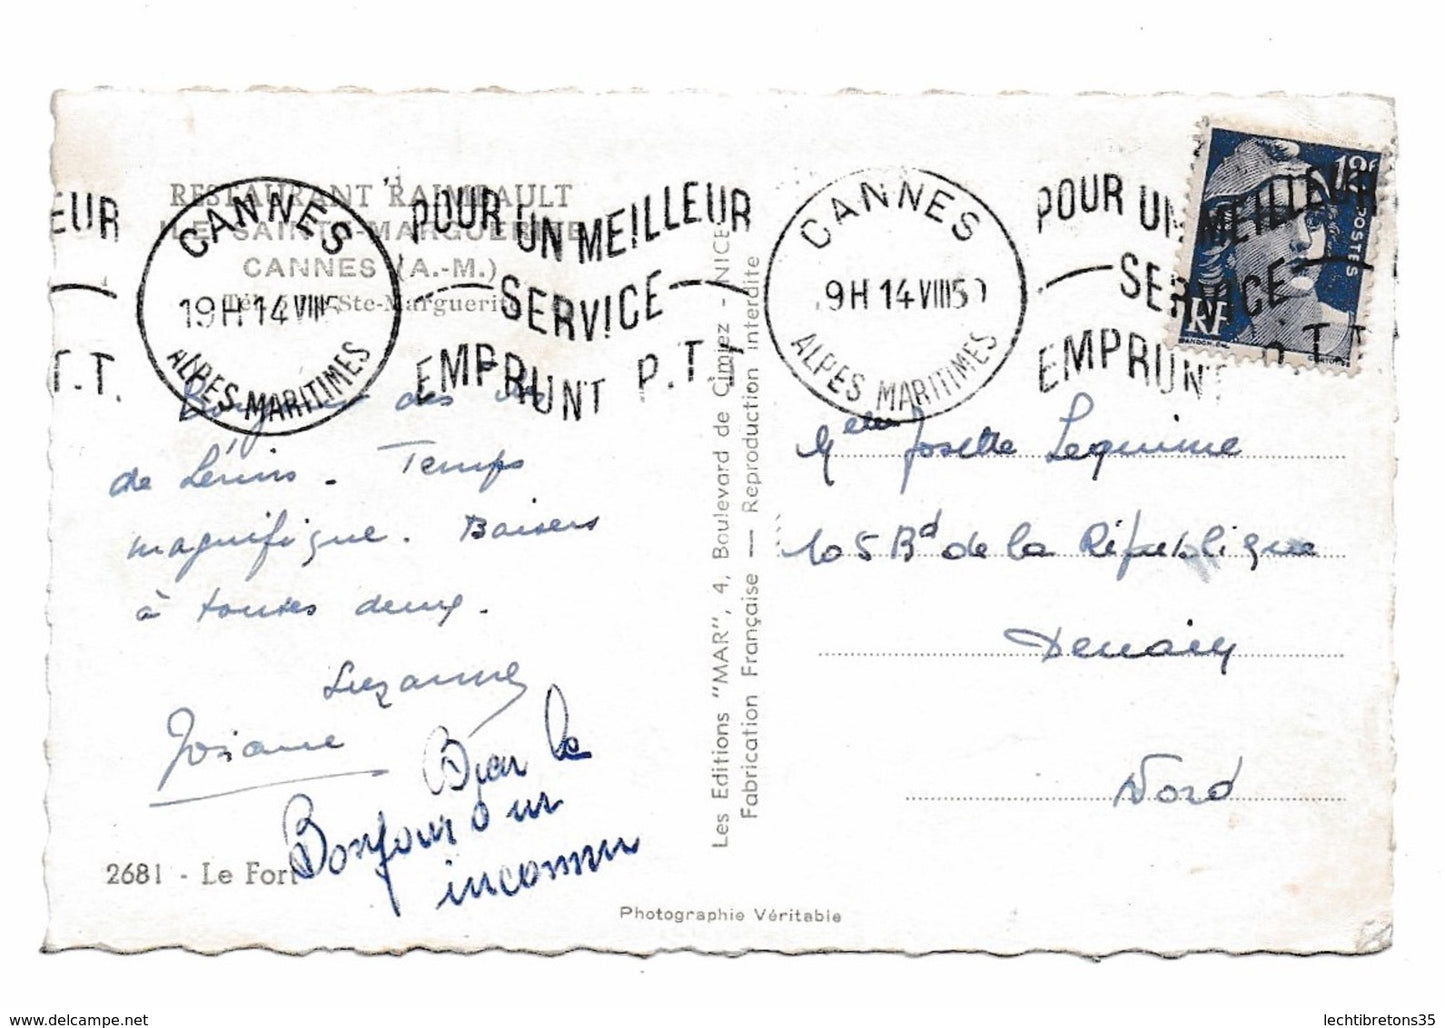 RESTAURANT RAIMBAULT
ILE SAINTE-MARGUERITE
CANNES (A.-M.)
Ste-Marguerite
EUR
T.T.
CANNES
19H 14 VIII 5
ALPES MARITIMES
POUR UN MEILLEUR
SERVICE
EMPRUNT P.T.T
CANNES
9H 14 VIII 50
ALPES MARITIMES
POUR UN MEILLEUR
SERVICE
EMPRUNT P.T.T
12f
POSTES
RF
Bonjour des îles
de Lérins. Temps
magnifique. Baisers
à toutes deux.
Suzanne
Josiane
Bonjour d'un
inconnu
2681 - Le Fort
Les Editions "MAR", 4, Boulevard de Cimiez - NICE
Fabrication Française — Reproduction interdite
Photographie Véritable
Melle Josette Lequime
105 Bd de la République
Denain
Nord
delcampe.net
lechtibretons35